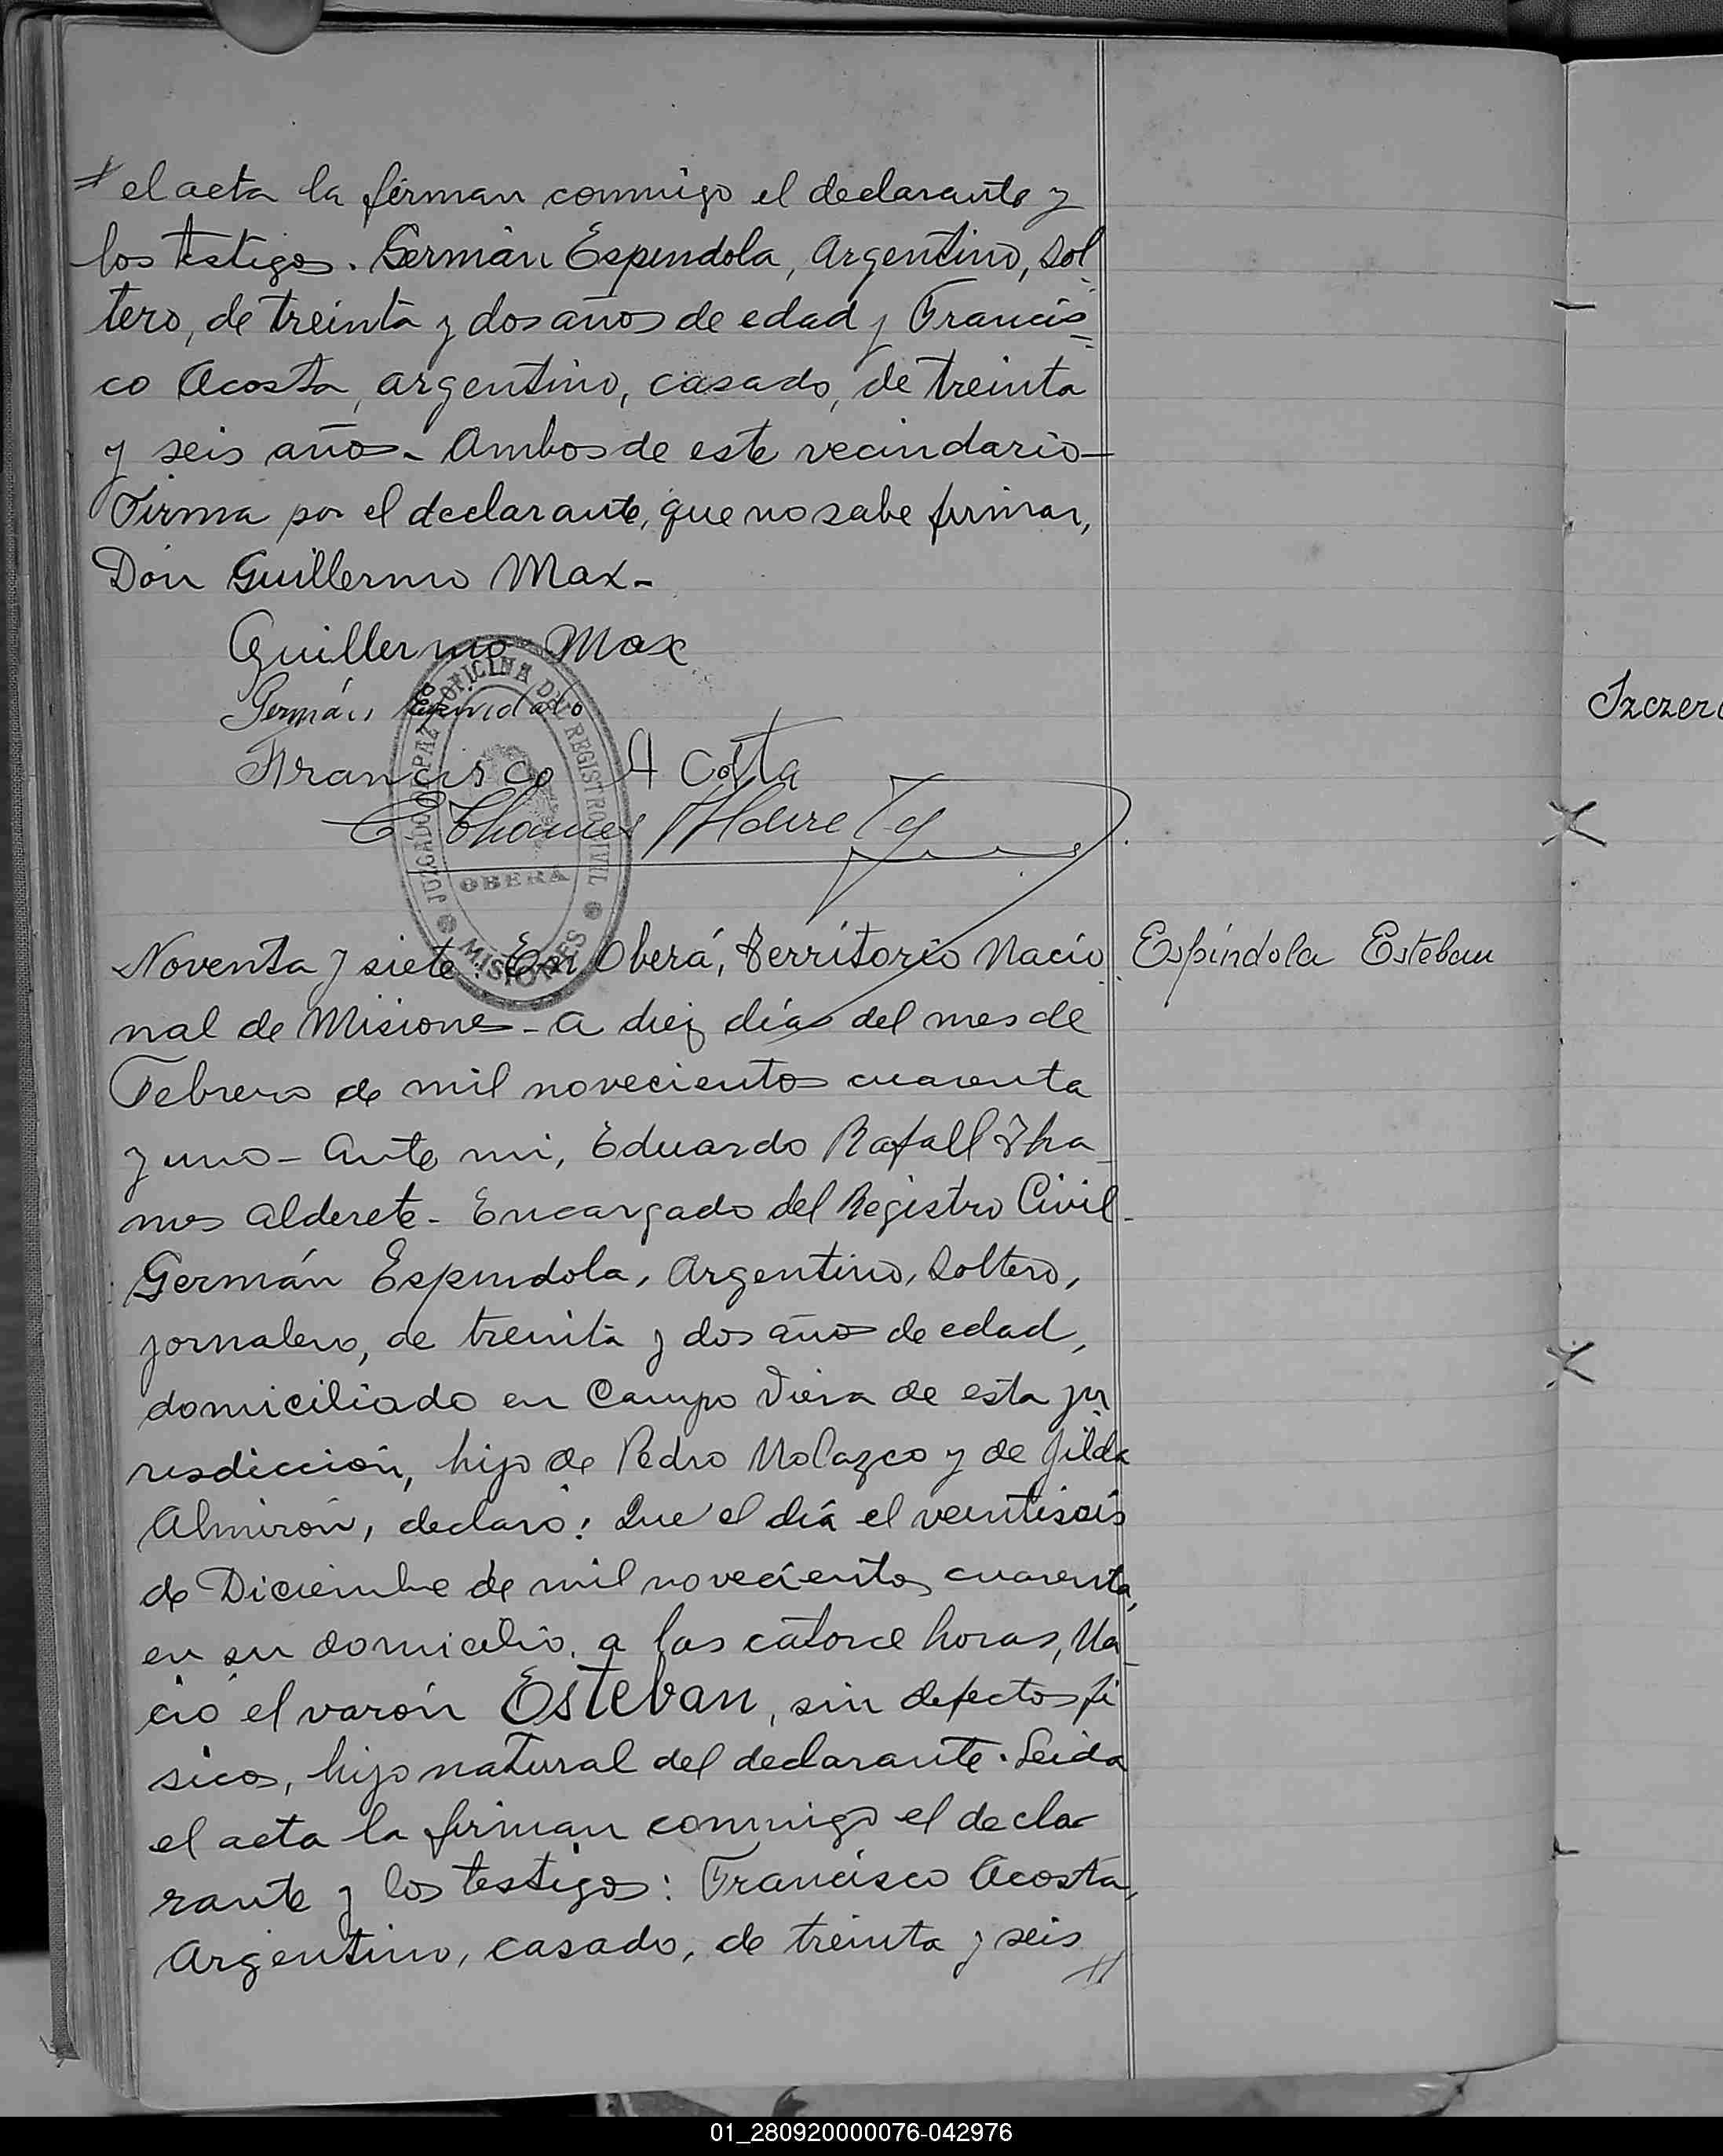 el acta la firman conmigo el declarante y
los testigos. Germán Espindola, Argentino, Sol
tero, de treinta y dos años de edad y Francis
co Acosta, argentino, casado, de treinta
y seis años - Ambos de este vecindario -
Firma por el declarante, que no sabe firmar,
Don Guillermo Max -
Guillermo Max
Germán Espindola
Francisco Acosta
E Thames Alderete
JUZGADO DE PAZ OFICINA DEL REGISTRO CIVIL
OBERA
MISIONES
Noventa y siete. En Oberá, Territorio Nacio
Espíndola Esteban
nal de Misiones - a diez días del mes de
Febrero de mil novecientos cuarenta
y uno - Ante mi, Eduardo Rafall Tha
mes Alderete - Encargado del Registro Civil -
Germán Espindola, Argentino, Soltero,
jornalero, de treinta y dos años de edad,
domiciliado en Campo Viera de esta ju
risdicción, hijo de Pedro Nolazco y de Jilda
Almirón, declaró: Que el día el veintiseis
de Diciembre de mil novecientos cuarenta,
en su domicilio, a las catorce horas, Na
ció el varón Esteban, sin defectos fi
sicos, hijo natural del declarante. Leida
el acta la firman conmigo el decla
rante y los testigos: Francisco Acosta,
Argentino, casado, de treinta y seis
Szczer
01_280920000076-042976